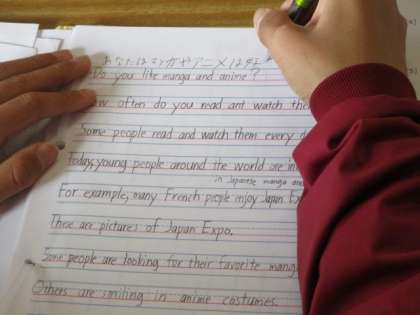 あなたはマンガやアニメは好
Do you like manga and anime?
ow often do you read ant watch the
Some people read and watch them every d
Today, young people around the world are in
in Japanese manga and
For example, many French people enjoy Japan Ex
These are pictures of Japan Expo.
Some people are looking for their favorite manga
Others are smiling in anime costumes.